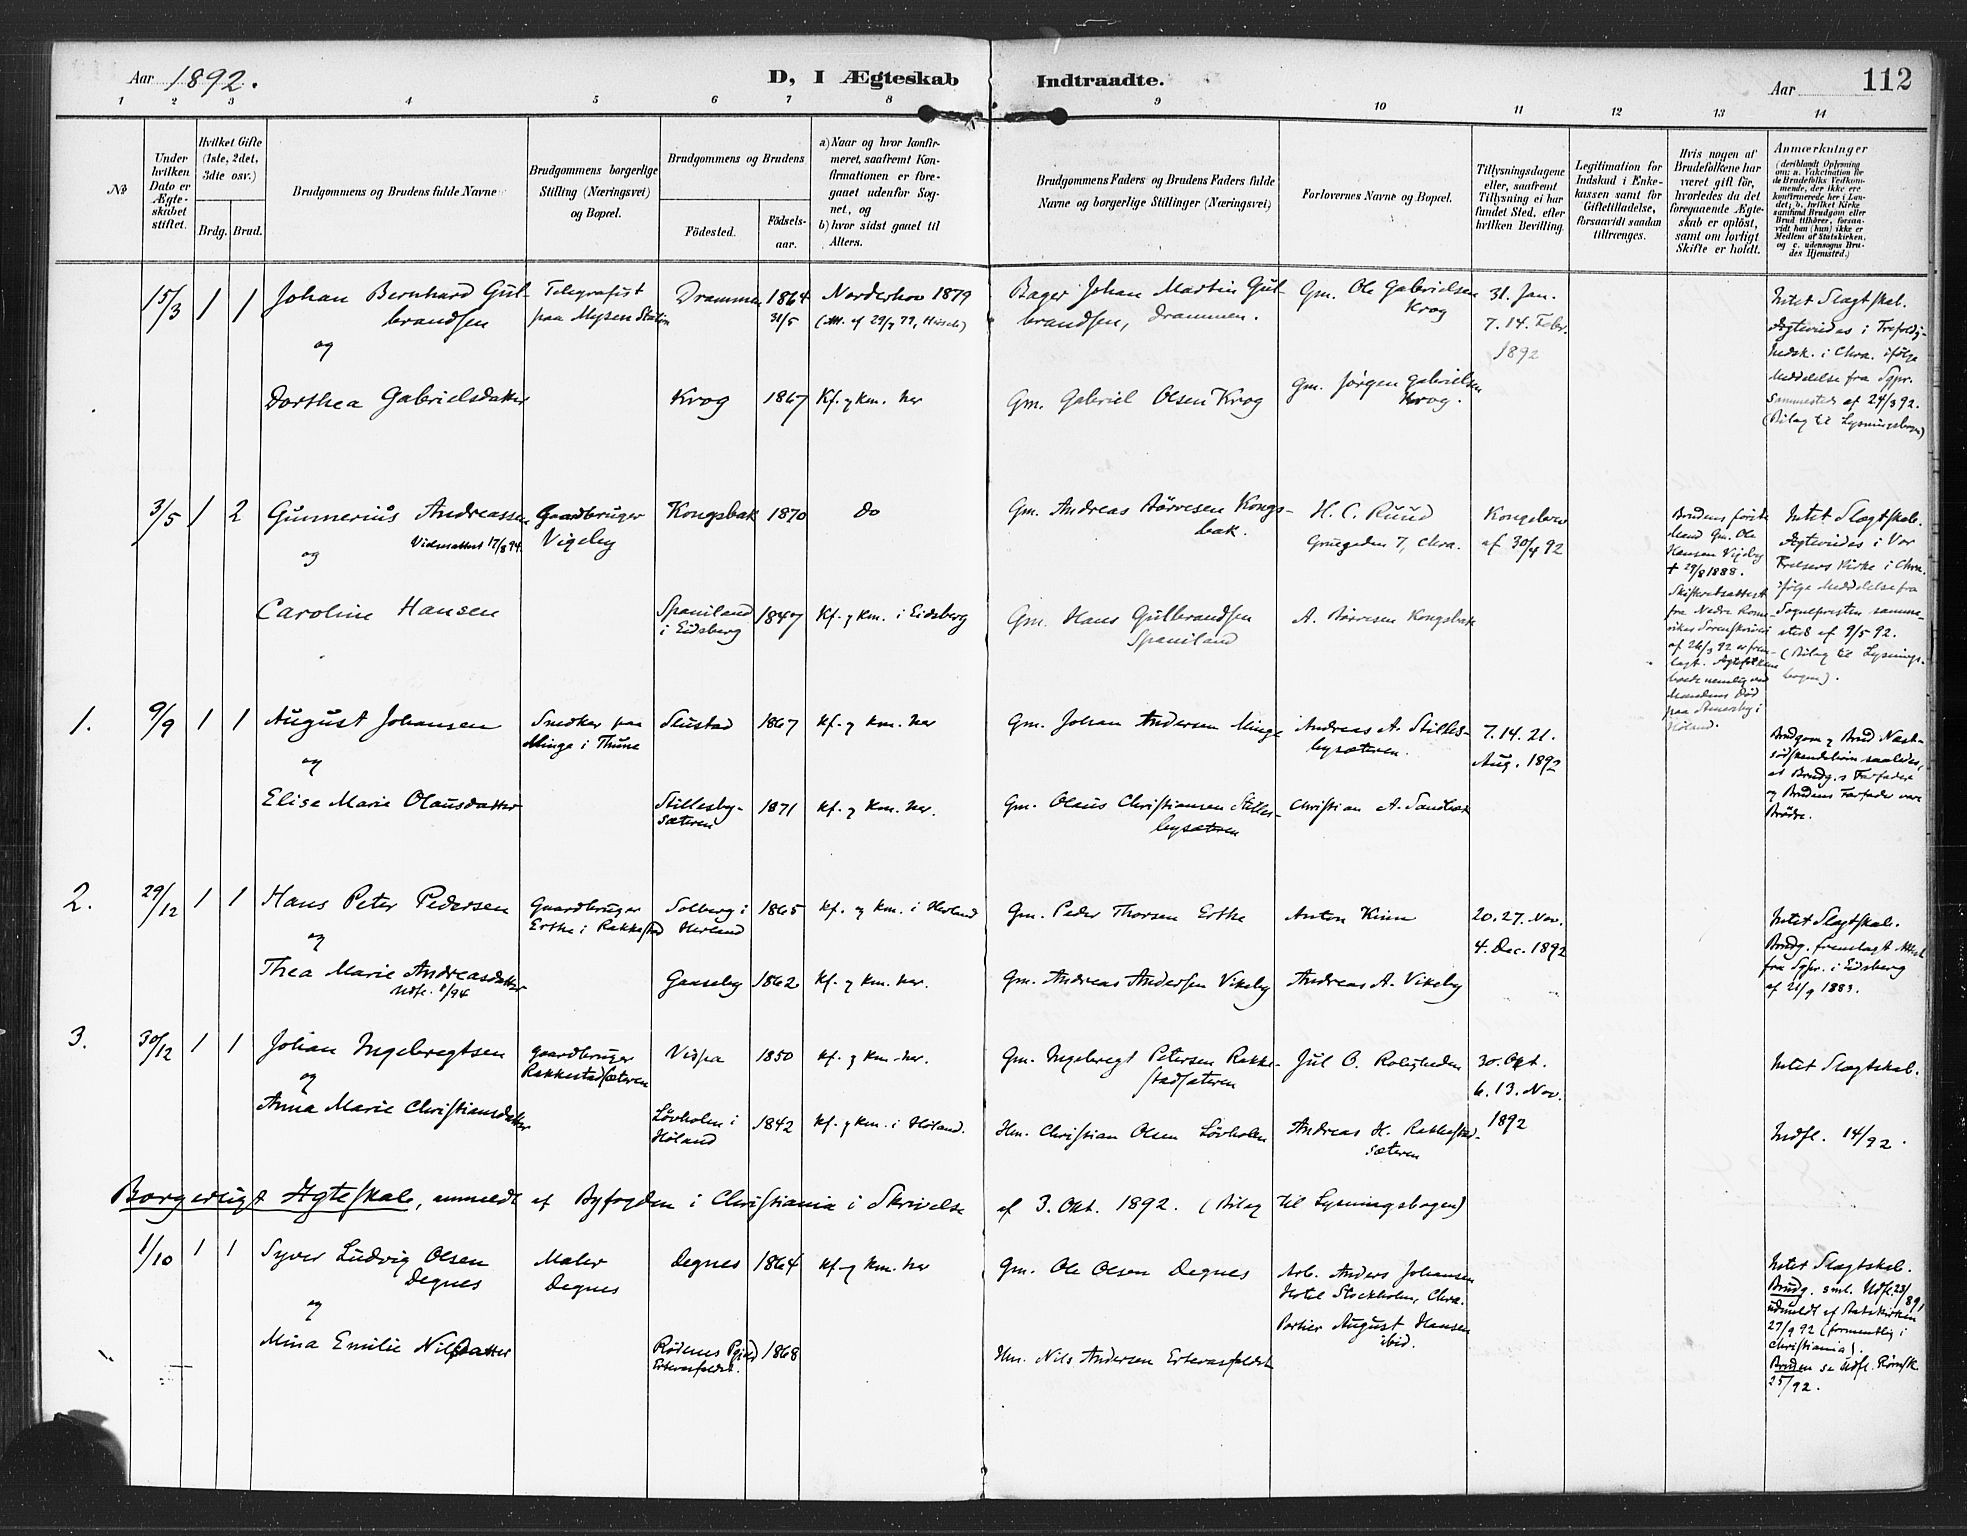 Aar 1892.
D, I Ægteskab Indtraadte.
Aar
112
1 2 3 4 5 6 7 8 9 10 11 12 13 14
№
Under hvilken Dato er Ægteskabet stiftet.
Hvilket Gifte (1ste, 2det, 3die osv.)
Brdg. Brud.
Brudgommens og Brudens fulde Navne
Brudgommens borgerlige Stilling (Næringsvei) og Bopæl.
Brudgommens og Brudens
Fødested.
Fødselsaar.
a) Naar og hvor konfirmeret, saafremt Konfirmationen er foregaaet udenfor Sognet, og
b) hvor sidst gaaet til Alters.
Brudgommens Faders og Brudens Faders fulde Navne og borgerlige Stillinger (Næringsvei)
Forlovernes Navne og Bopæl.
Tillysningsdagene eller, saafremt Tillysning ei har fundet Sted, efter hvilken Bevilling.
Legitimation for Indskud i Enkekassen samt for Giftetilladelse, forsaavidt saadan tiltrænges.
Hvis nogen af Brudefolkene har været gift før, hvorledes da det foregaaende Ægteskab er opløst, samt om lovligt Skifte er holdt.
Anmærkninger
(deriblandt Oplysning om: a. Vakcination for de Brudefolks Vedkommende, der ikke ere konfirmerede her i Landet; b. hvilket Kirkesamfund Brudgom eller Brud tilhører, forsaavidt han (hun) ikke er Medlem af Statskirken, og c. udensogns Brudes Hjemsted.)
15/3 1 1 Johan Bernhard Gulbrandsen
og
Telegrafist paa Mysen Station
Drammen 1864 31/5
Norderhov 1879
Bager Johan Martin Gulbrandsen, Drammen.
Gm. Ole Gabrielsen Krog
31. Jan. 7. 14. Febr. 1892
Intet Slagtskab.
Ægteviedes i
i Chra. ifølge
Meddelelse fra Sgpr.
sammesteds af 24/3 92.
(Bilag til Lysningsbogen)
Dorthea Gabrielsdatter
Krog 1867 Kf. & km. her
Gm. Gabriel Olsen Krog
Gm. Jørgen Gabrielsen Krog.
3/5 1 2 Gunnerius Andreassen
17/8 94
og
Gaardbruger Vigeby
Kongsbak 1870 Do
Gm. Andreas Børresen Kongsbak.
H. C. Ruud
7, Chra.
Kongebrev af 30/4 92
Brudens første
Mand Gm. Ole
Hansen Vigeby
+ 29/8 1888.
Skifteretsattest
fra Nedre Romerikes Sorenskriveri
af 26/3 92 er fremlagt.
Intet Slagtskab.
Ægteviedes i Vor
Frelsers Kirke i Chra.
ifølge Meddelelse fra
Sognepresten sammesteds af 9/5 92.
(Bilag til Lysningsbogen).
Caroline Hansen
Spaniland i Eidsberg 1847 Kf. & km. i Eidsberg
Gm. Hans Gulbrandsen Spaniland
A. Børresen Kongsbak
1. 9/9 1 1 August Johansen
og
Snedker paa Minge i Thune
1867 Kf. & km. her
Gm. Johan Andersen Minge
Andreas A. Stillesbysæteren.
7. 14. 21. Aug. 1892
Brudgom & Brud Næstsødskendebørn saaledes,
at Brudg.s Farfader
og Brudens Farfader vare
Brødre.
Elise Marie Olausdatter
Stillesbysæteren 1871 Kf. & km. her.
Gm. Olaus Christiansen Stillesbysæteren
Christian A. Sandbæk
2. 29/12 1 1 Hans Peter Pedersen
og
Gaardbruger Erthe i Rakkestad
Solberg i Herland 1865 Kf. og km. i Herland
Gm. Peder Thorsen Erthe
Anton Kinn
20. 27. Nov. 4. Dec. 1892
Intet Slagtskab.
Brudg. fremlagt Attest
fra Sgpr. i Eidsberg
af 21/9 1883.
Thea Marie Andreasdatter
Udfl. 1/94
Gaaseby 1862 Kf. & km. her.
Gm. Andreas Andersen Vikeby
Andreas A. Vikeby
3. 30/12 1 1 Johan Ingebregtsen
og
Gaardbruger Rakkestadsæteren
1850 Kf. & km. her.
Gm. Ingebregt Petersen Rakkestadsæteren
Jul O. Roligheden
30. Okt. 6. 13. Nov. 1892
Intet Slagtskab.
Anna Marie Christiansdatter
Løvholen i Høland 1842 Kf. & km. i Høland.
Hm. Christian Olsen Løvholen
Andreas H. Rakkestadsæteren
Indfl. 14/92.
Borgerligt Ægteskab, anmeldt af Byfogden i Christiania i Skrivelse af 3. Okt. 1892. (Bilag til Lysningsbogen)
1/10 1 1 Syver Ludvig Olsen Degnes
og
Maler Degnes
Degnes 1864 Kf. & km. her
Gm. Ole Olsen Degnes
Arb. Anders Johansen
Hotel Stockholm, Chra.
Portier August Hansen
ibid.
Intet Slagtskab.
Brudg.
udmeldt af Statskirken
27/9 92 (formentlig i
Christiania).
Bruden se Udfl.
25/92.
Mina Emilie Nilsdatter
Rødenes Pgjeld 1868
Hm. Nils Andersen